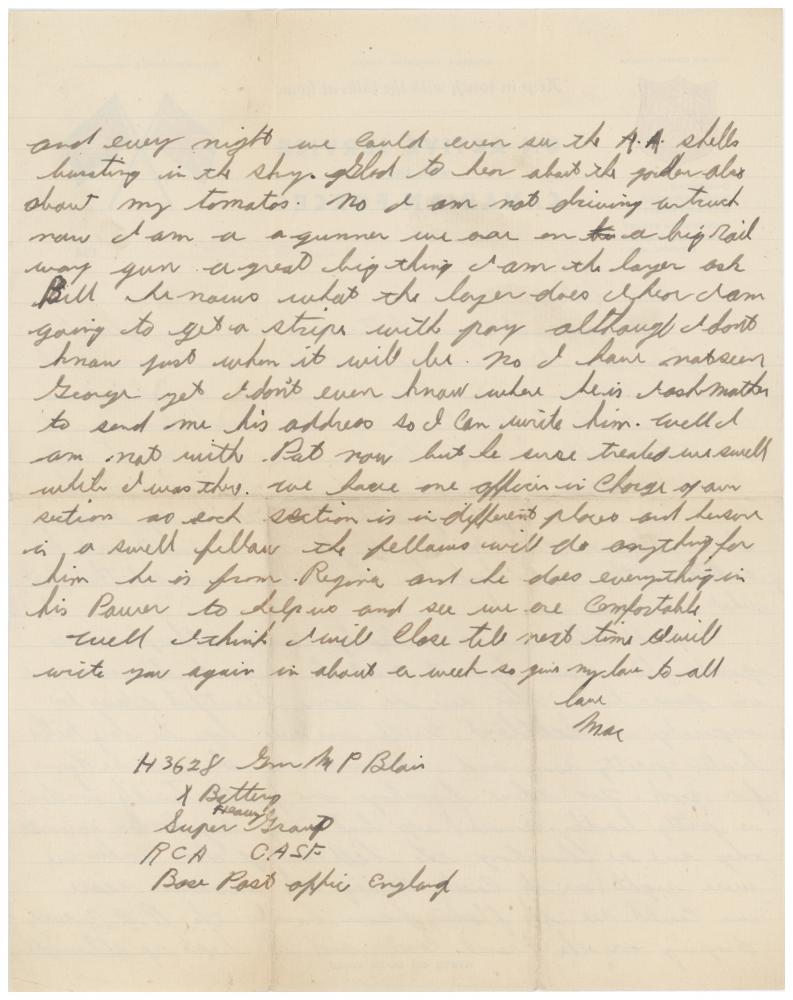 and every night we could even see the A.A. shells
bursting in the sky. Glad to hear about the garden also
about my tomatos. No I am not driving a truck
now I am a a gunner we are on a big Rail
way gun a great big thing I am the layer ask
Bill he nows what the layer does I hear I am
going to get a stripe with pay although I don't
know just when it will be. No I have not seen
George yet I don't even know where he is I ask Mother
to send me his address so I can write him. Well I
am not with Pat now but he sure treated me swell
while I was there. We have one officer in Charge of our
section as each section is in different places and he sure
is a swell fellow the fellows will do anything for
him he is from Regina and he does everything in
his Power to help us and see we are Comfortable
Well I think I will Close till next time I will
write you again in about a week so give my love to all
love
Mac
H 3628 Gnr M P Blair
X Battery
Super Heavy Group
RCA CASF
Base Post office England